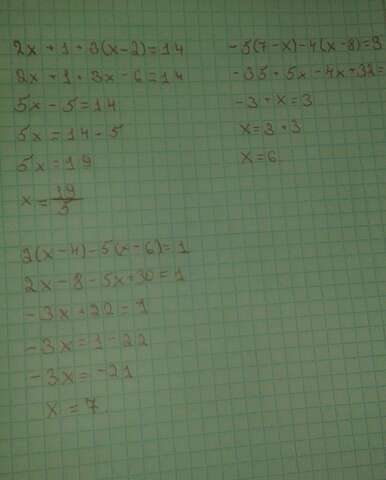 2x + 1 + 3(x-2) = 14
2x + 1 + 3x - 6 = 14
5x - 5 = 14
5x = 14 - 5
5x = 19
x = 19/5
-5(7-x) - 4(x-8) = 3
-35 + 5x - 4x + 32 =
-3 + x = 3
x = 3 + 3
x = 6
2(x-4) - 5(x-6) = 1
2x - 8 - 5x + 30 = 1
-3x + 22 = 1
-3x = 1 - 22
-3x = -21
x = 7